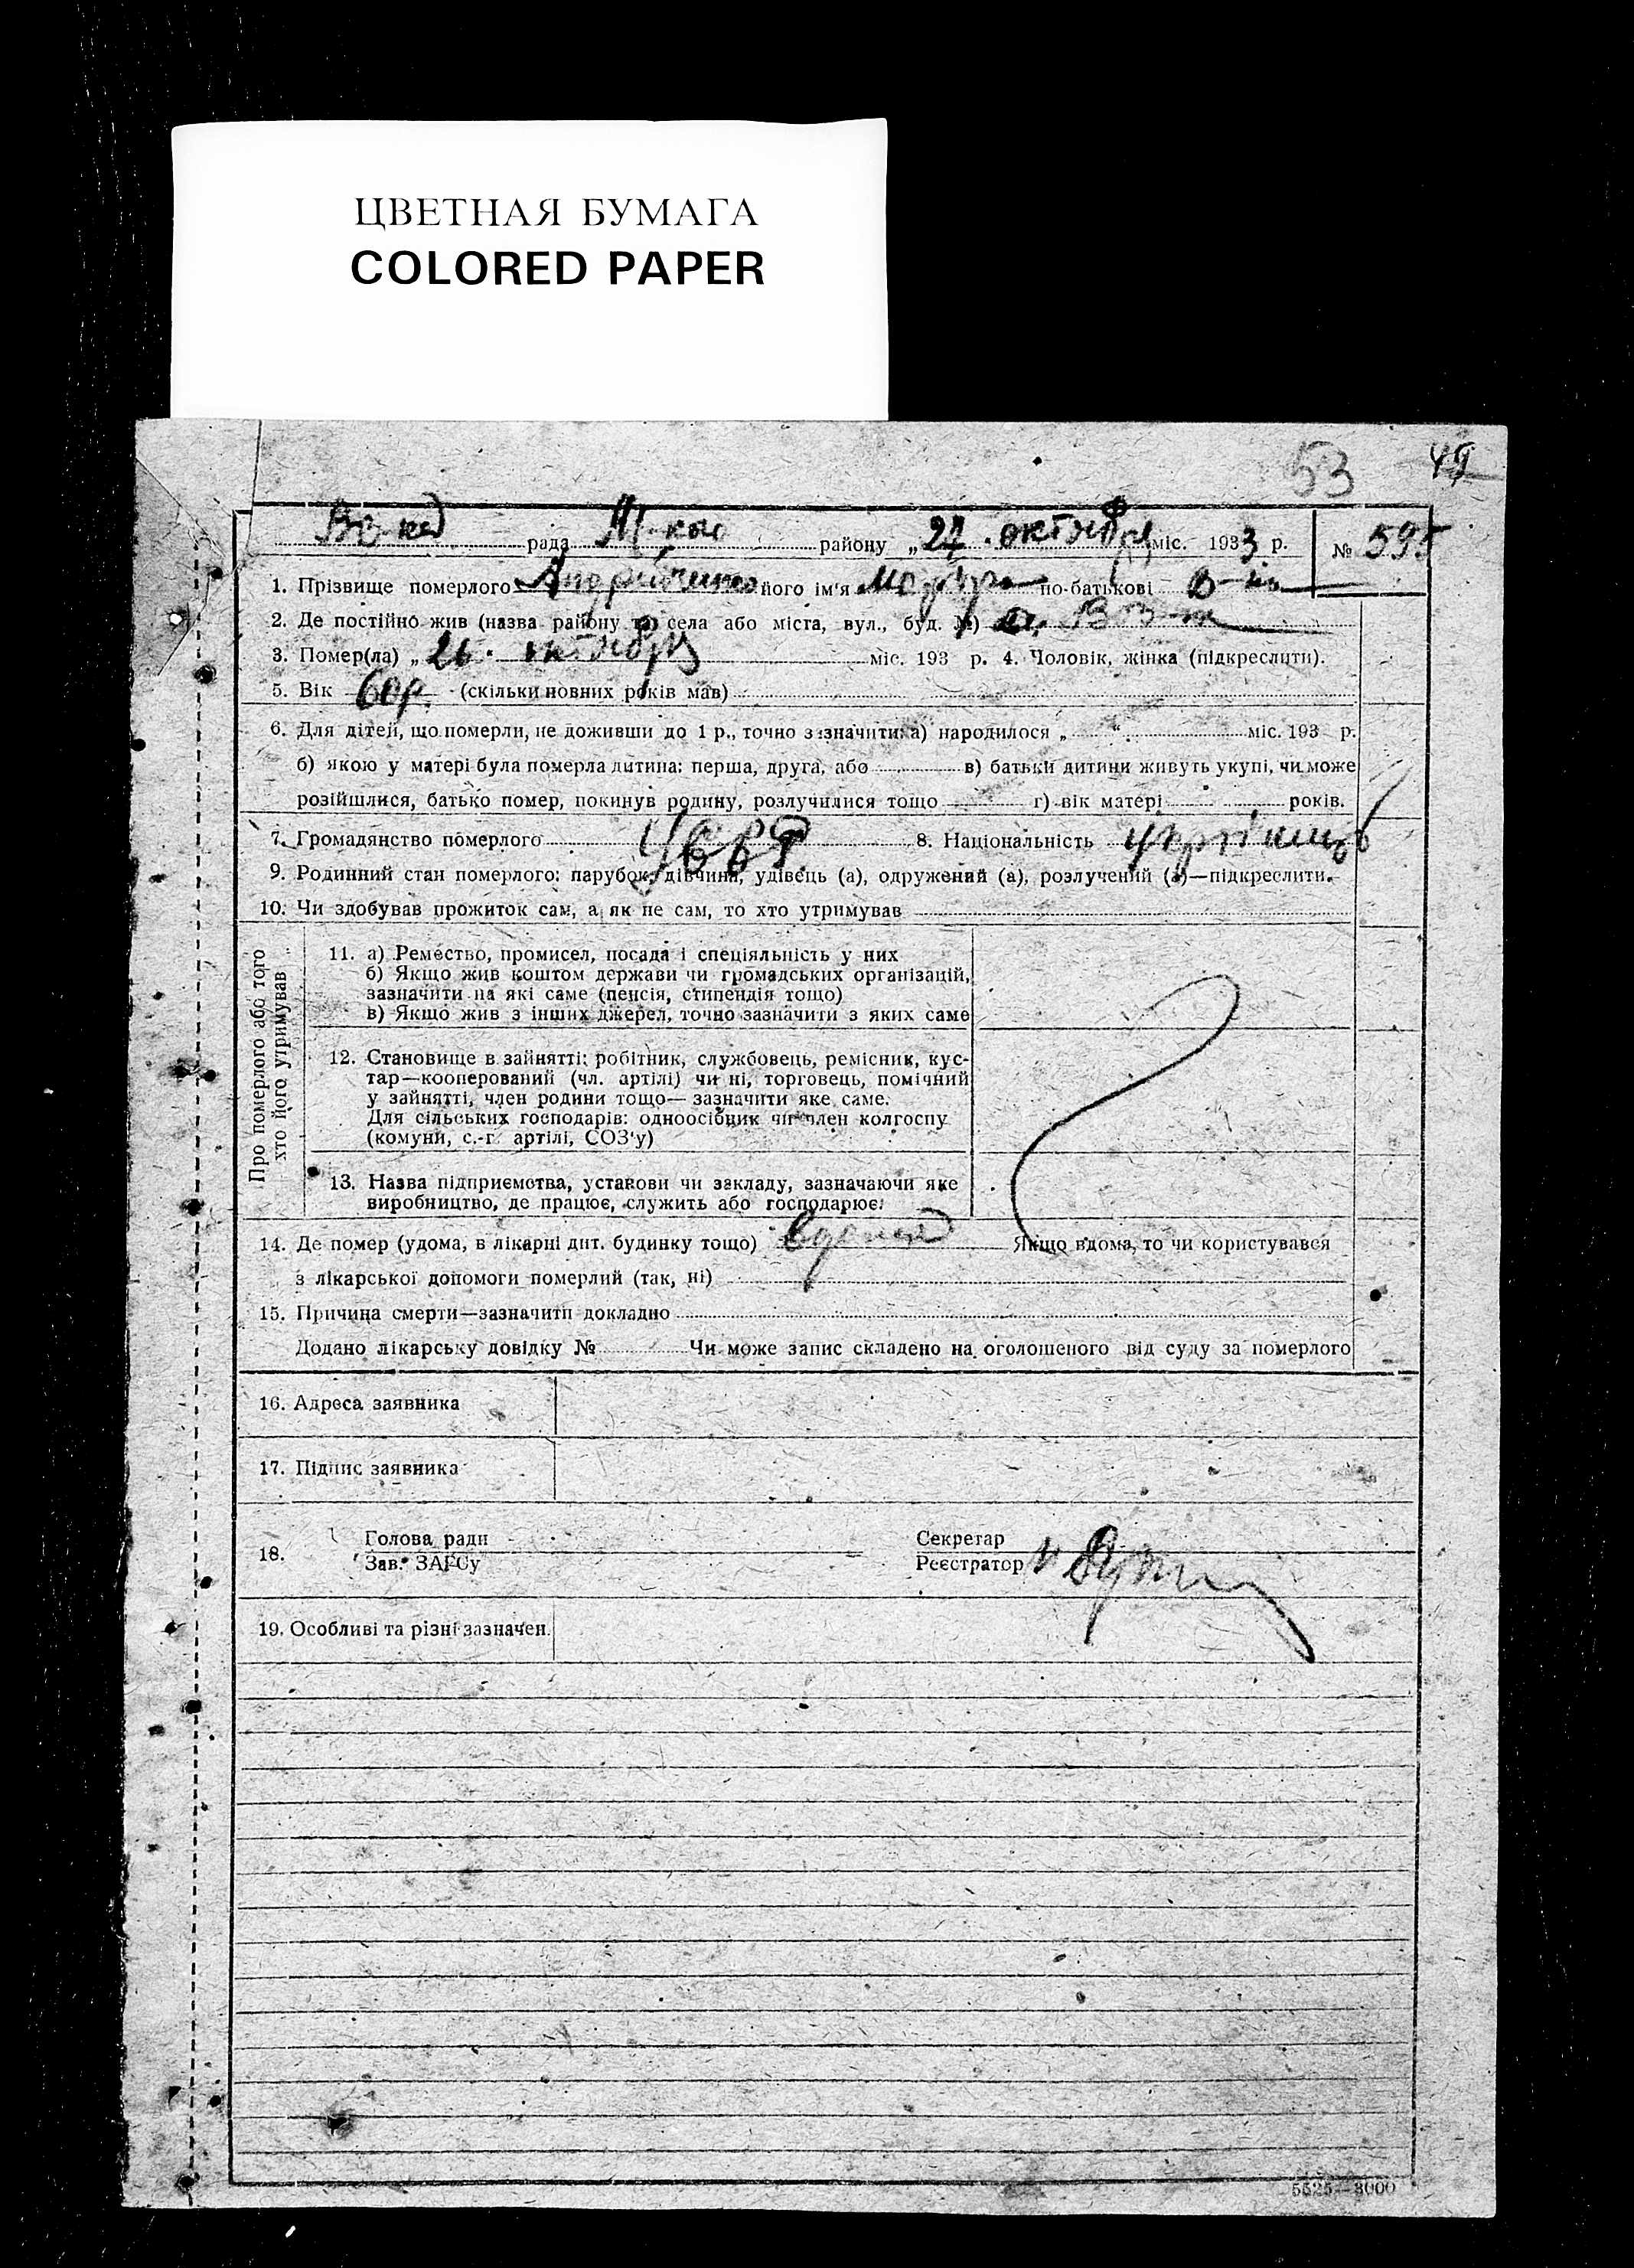 ЦВЕТНАЯ БУМАГА
COLORED PAPER
53 49
рада району „27. октября міс. 1933 р. № 595
1. Прізвище померлого його ім'я по-батькові
2. Де постійно жив (назва району та села або міста, вул., буд. №)
3. Помер(ла) „26. октября міс. 193 р. 4. Чоловік, жінка (підкреслити).
5. Вік 60 р. (скільки повних років мав)
6. Для дітей, що померли, не доживши до 1 р., точно зазначити: а) народилося „ “ міс. 193 р.
б) якою у матері була померла дитина: перша, друга, або в) батьки дитини живуть укупі, чи може
розійшлися, батько помер, покинув родину, розлучилися тощо г) вік матері років.
7. Громадянство померлого УССР 8. Національність
9. Родинний стан померлого: парубок, дівчина, удівець (а), одружений (а), розлучений (а)—підкреслити.
10. Чи здобував прожиток сам, а як не сам, то хто утримував
Про померлого або того
хто його утримував
11. а) Ремество, промисел, посада і спеціяльність у них
б) Якщо жив коштом держави чи громадських організацій,
зазначити на які саме (пенсія, стипендія тощо)
в) Якщо жив з інших джерел, точно зазначити з яких саме
12. Становище в зайнятті: робітник, службовець, ремісник, кус-
тар—кооперований (чл. артілі) чи ні, торговець, помічний
у зайнятті, член родини тощо— зазначити яке саме.
Для сільських господарів: одноосібник чи член колгоспу
(комуни, с.-г. артілі, СОЗ'у)
13. Назва підприємства, установи чи закладу, зазначаючи яке
виробництво, де працює, служить або господарює:
14. Де помер (удома, в лікарні дит. будинку тощо) вдома Якщо вдома, то чи користувався
з лікарської допомоги померлий (так, ні)
15. Причина смерти—зазначити докладно
Додано лікарську довідку № Чи може запис складено на оголошеного від суду за померлого
16. Адреса заявника
17. Підпис заявника
18. Голова ради Секретар
Зав. ЗАГСу Реєстратор
19. Особливі та різні зазначен.
5525—3000